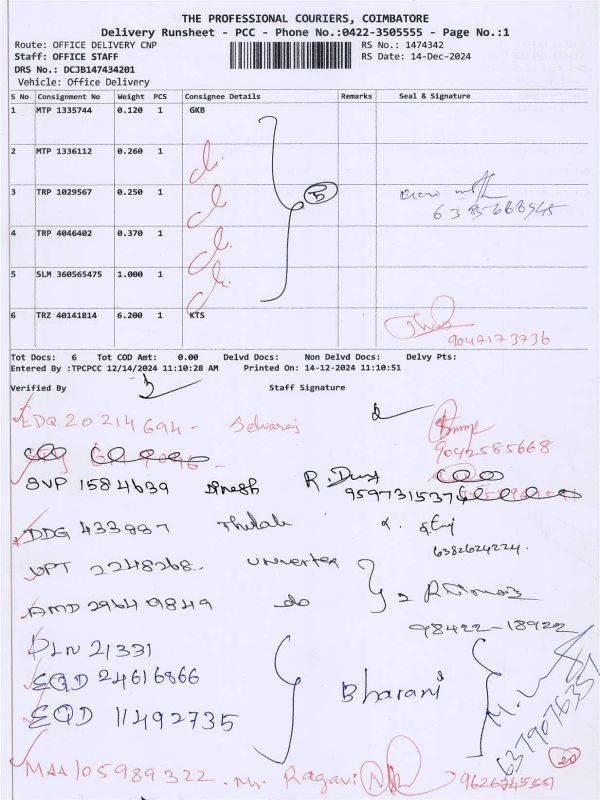 THE PROFESSIONAL COURIERS, COIMBATORE
Delivery Runsheet - PCC - Phone No.:0422-3505555 - Page No.:1
Route: OFFICE DELIVERY CNP RS No.: 1474342
Staff: OFFICE STAFF RS Date: 14-Dec-2024
DRS No.: DCJB147434201
Vehicle: Office Delivery
S No Consignment No Weight PCS Consignee Details Remarks Seal & Signature
1 MTP 1335744 0.120 1 GKB
2 MTP 1336112 0.260 1
3 TRP 1029567 0.250 1
4 TRP 4046402 0.370 1
5 SLM 360565475 1.000 1
6 TRZ 40141814 6.200 1 KTS
9047173736
Tot Docs: 6 Tot COD Amt: 0.00 Delvd Docs: Non Delvd Docs: Delvy Pts:
Entered By :TPCPCC 12/14/2024 11:10:28 AM Printed On: 14-12-2024 11:10:51
Verified By Staff Signature
EDQ 20214694 - Selvaraj
9042585668
SVP 1584639 Dinesh
DDG 433887 Thilak
6382624224
VPT 2248268
AMD 29649849 do
98422-18922
PLN 21331
EQD 24616866 Bharani
EQD 11492735
6379076351
20
MAA 105989322 Ragavi